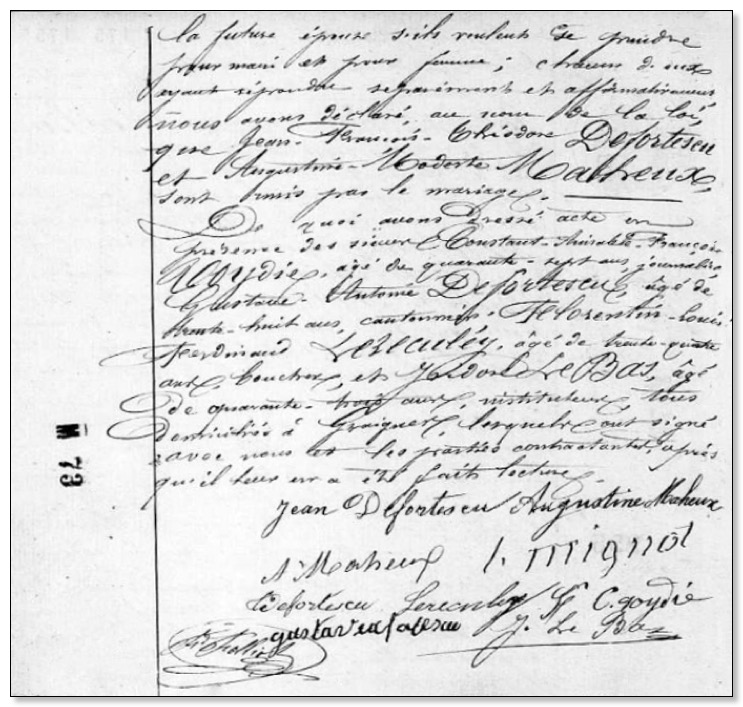 la future épouse s'ils veulent se prendre
pour mari et pour femme; chacun d'eux
ayant répondu séparément et affirmativement
nous avons déclaré, au nom de la loi,
que Jean-François-Théodore Defortescu
et Augustine-Modeste Maheux,
sont unis par le mariage.
De quoi avons dressé acte en
présence des sieurs Constant-Aimable-François
Goydie, âgé de quarante-sept ans, journalier
Gustave-Antoine Defortescu, âgé de
trente-huit ans, cantonnier, Florentin-Louis
Ferdinand Lereculey, âgé de trente-quatre
ans, boucher, et Isidore Le Bas, âgé
de quarante-trois ans, instituteur, tous
domiciliés à Graignes, lesquels ont signé
avec nous et les parties contractantes, après
qu'il leur en a été fait lecture.
M 73
Jean Defortescu Augustine Maheux
A Maheux l. mignot
Defortescu Lereculey C. goydie
gustave J. Le Bas